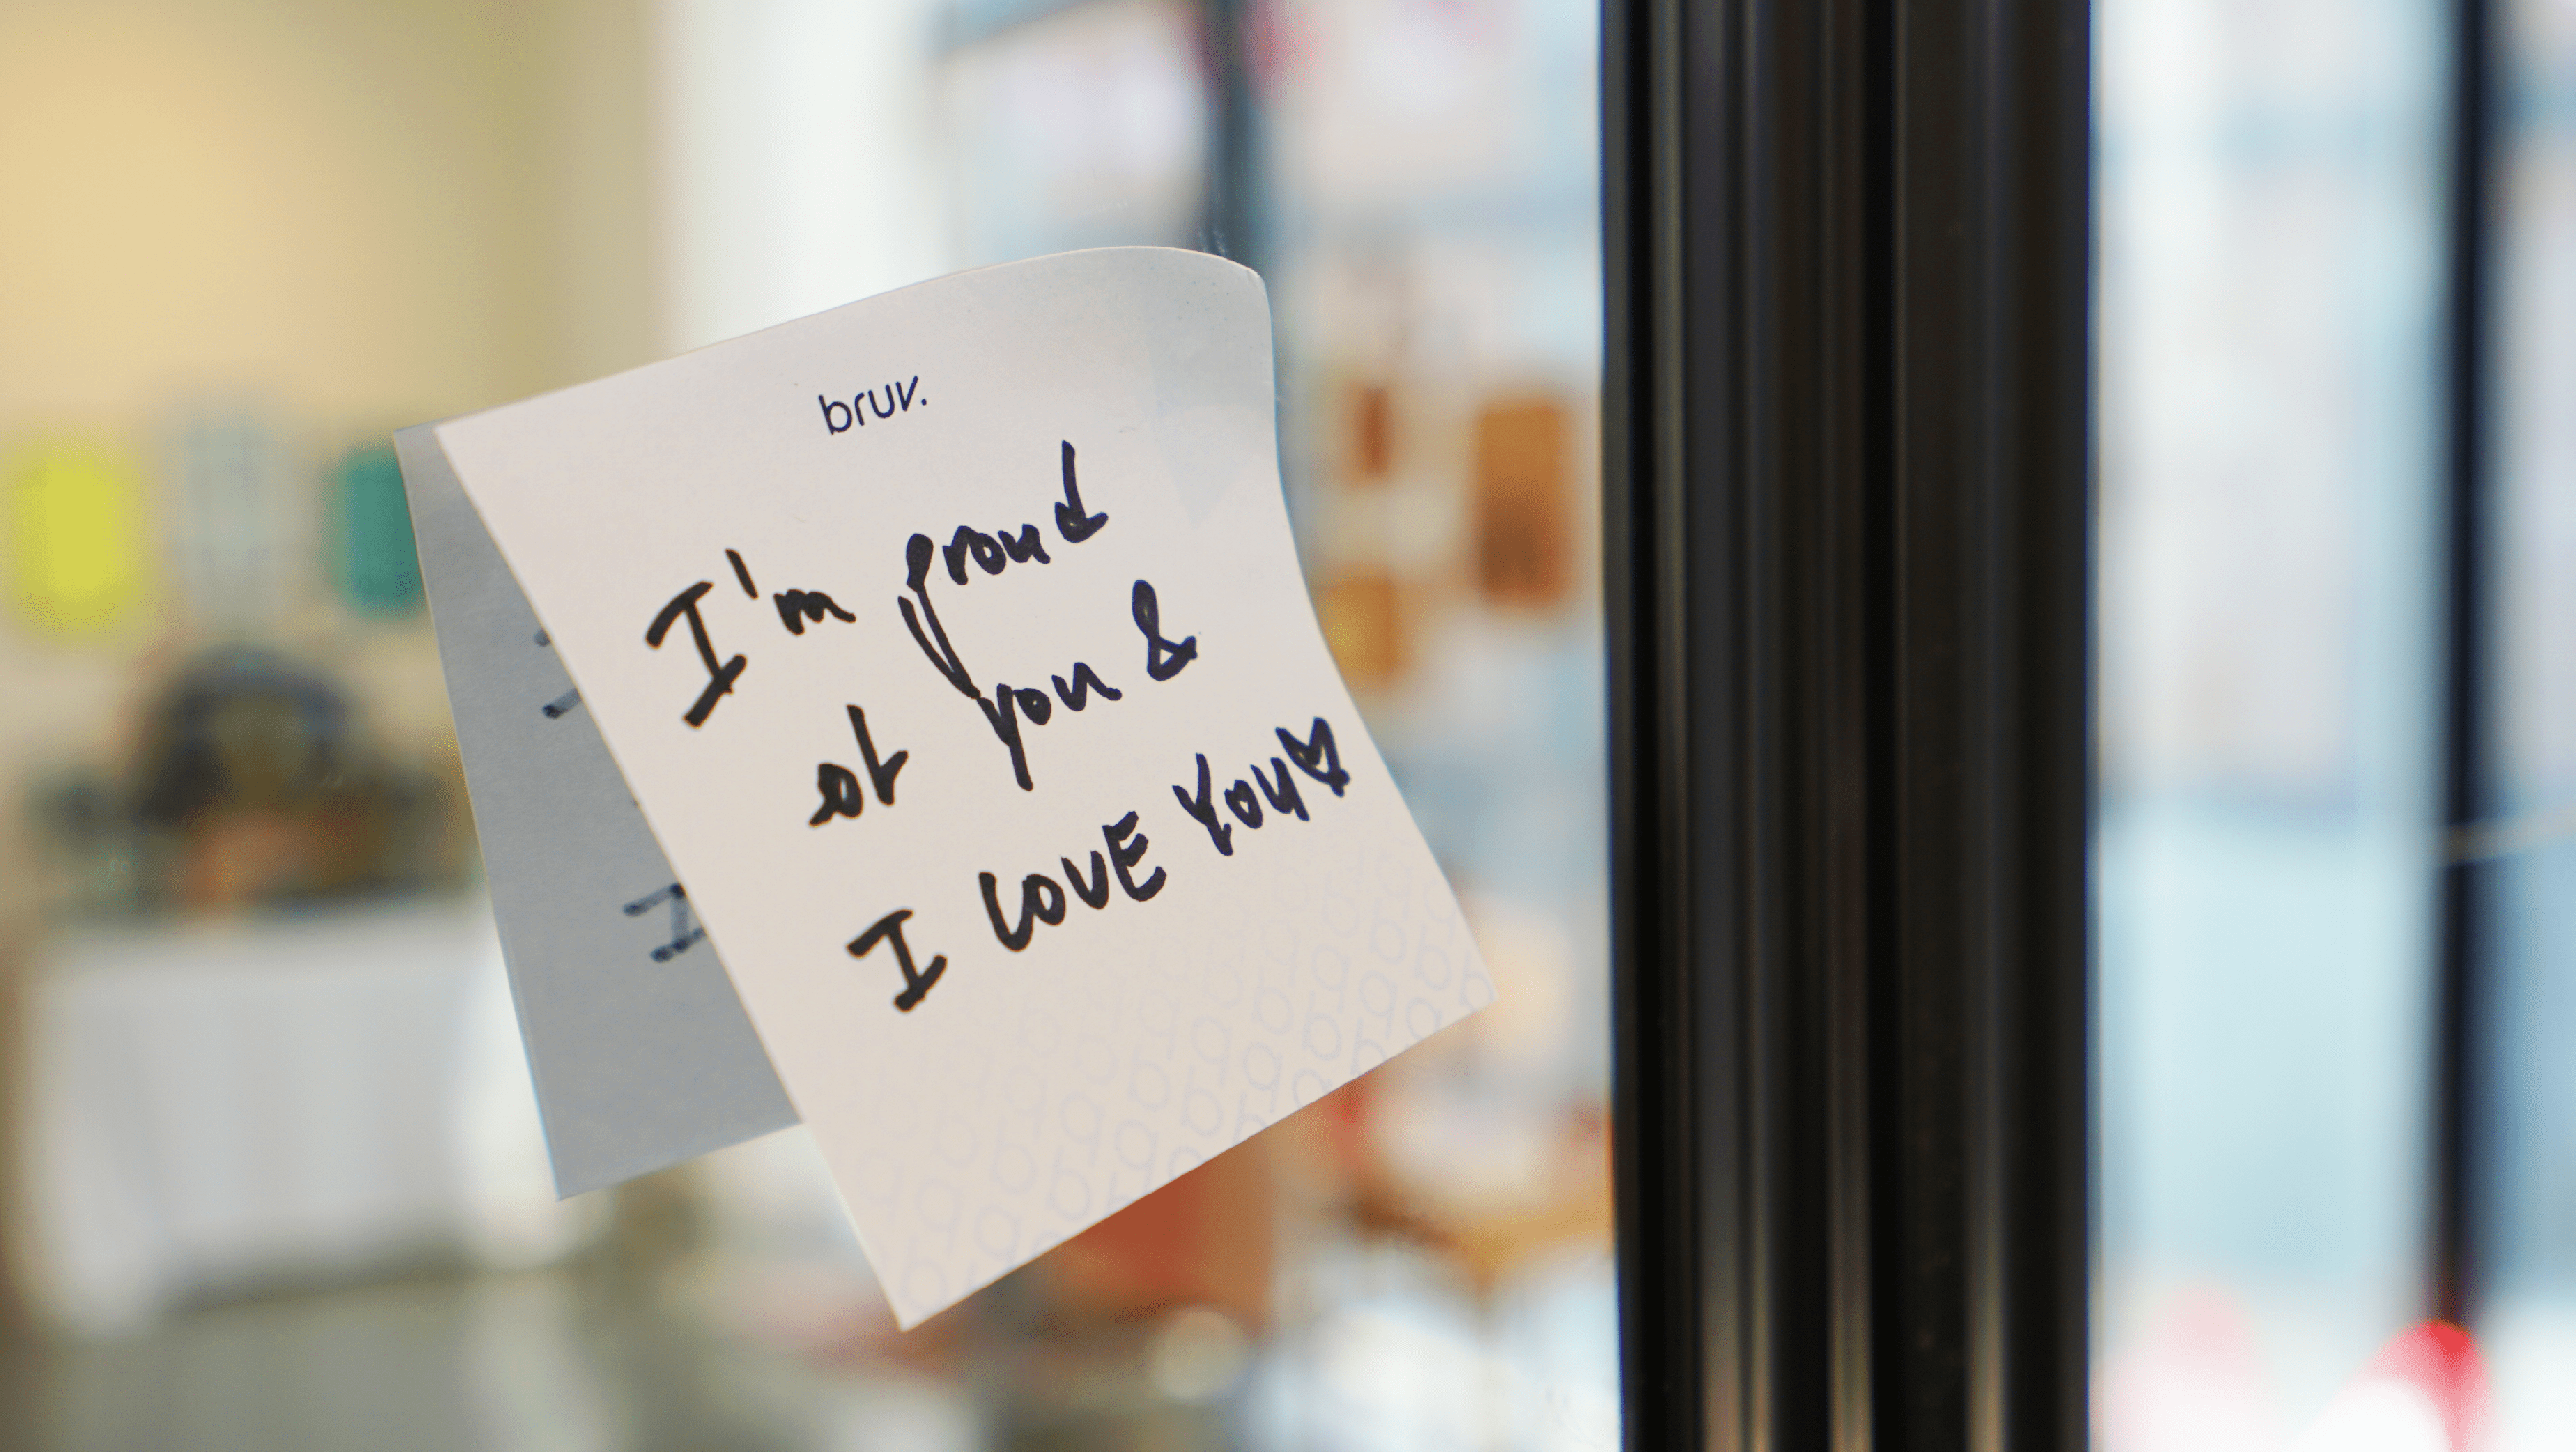 bruv.
I'm proud
of you &
I LOVE YOU♥